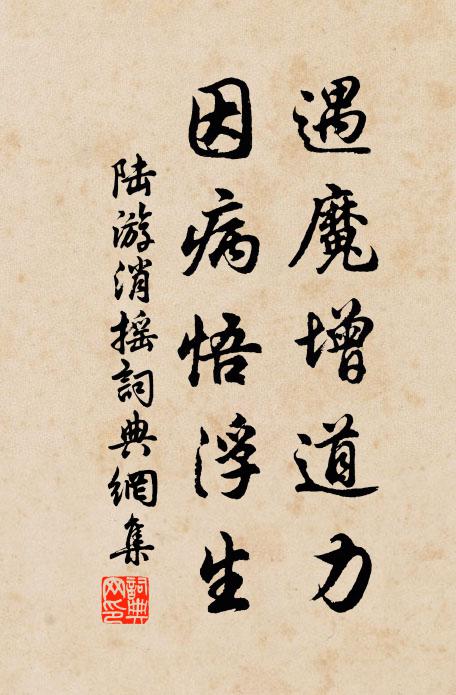 遇魔增道力
因病悟浮生
陆游消摇詞典網集
詞典网印